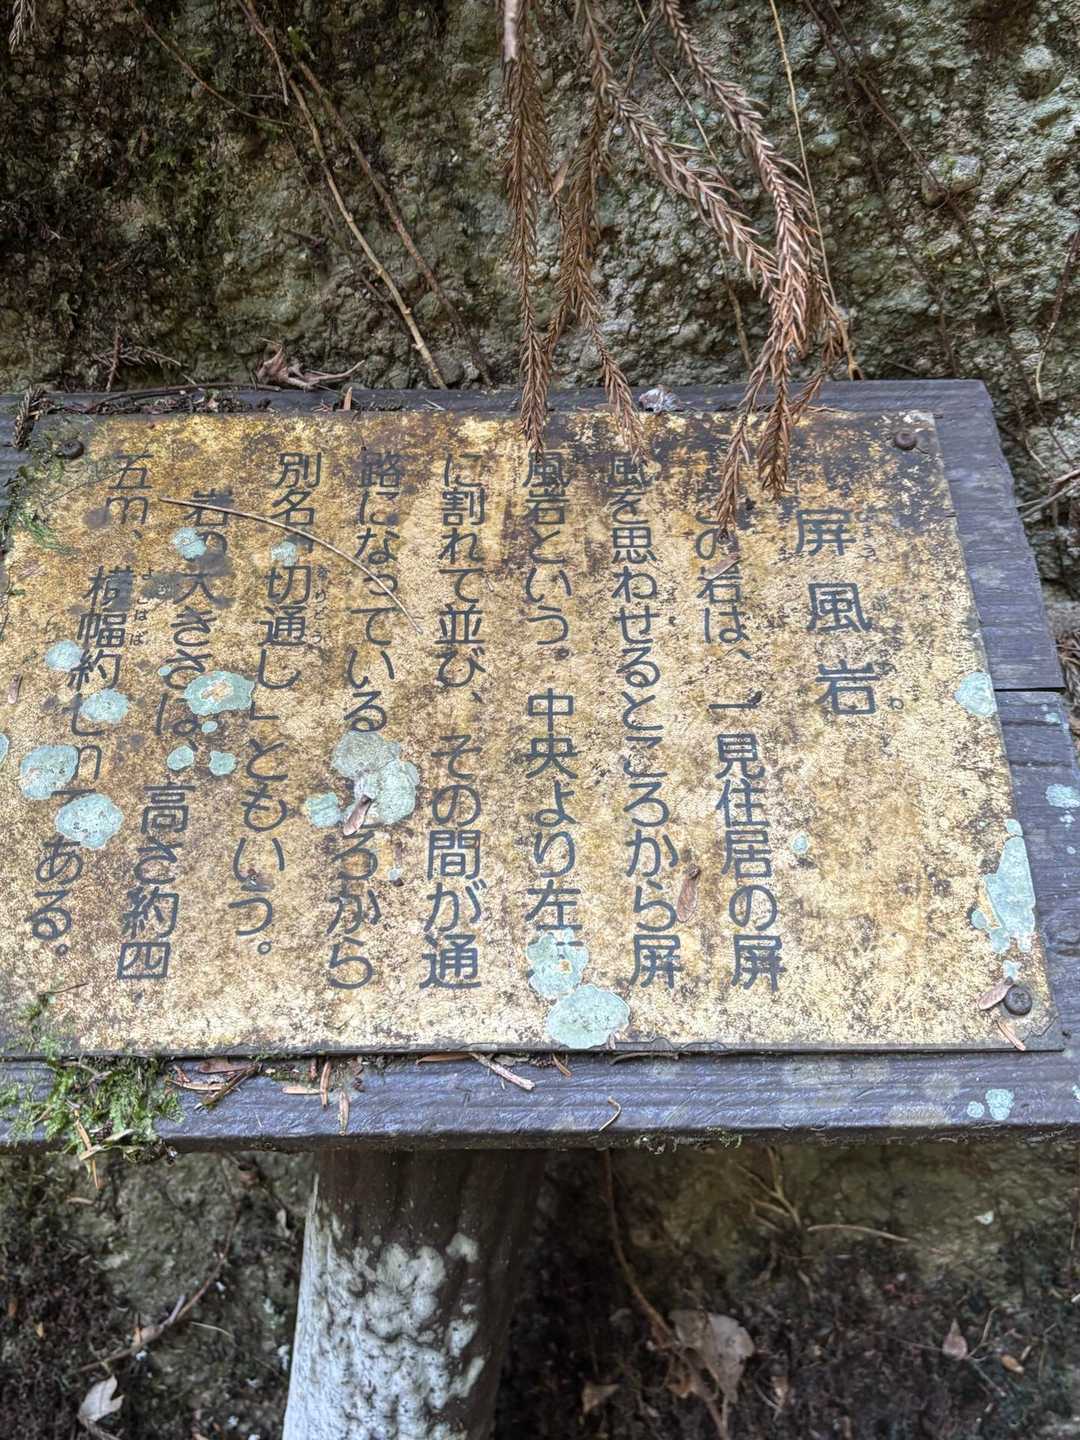 屏風岩
この岩は、一見住居の屏
風を思わせるところから屏
風岩という。中央より左
に割れて並び、その間が通
路になっているころから
別名「切通し」ともいう。
岩の大きさは、高さ約四
五m、横幅約 mである。